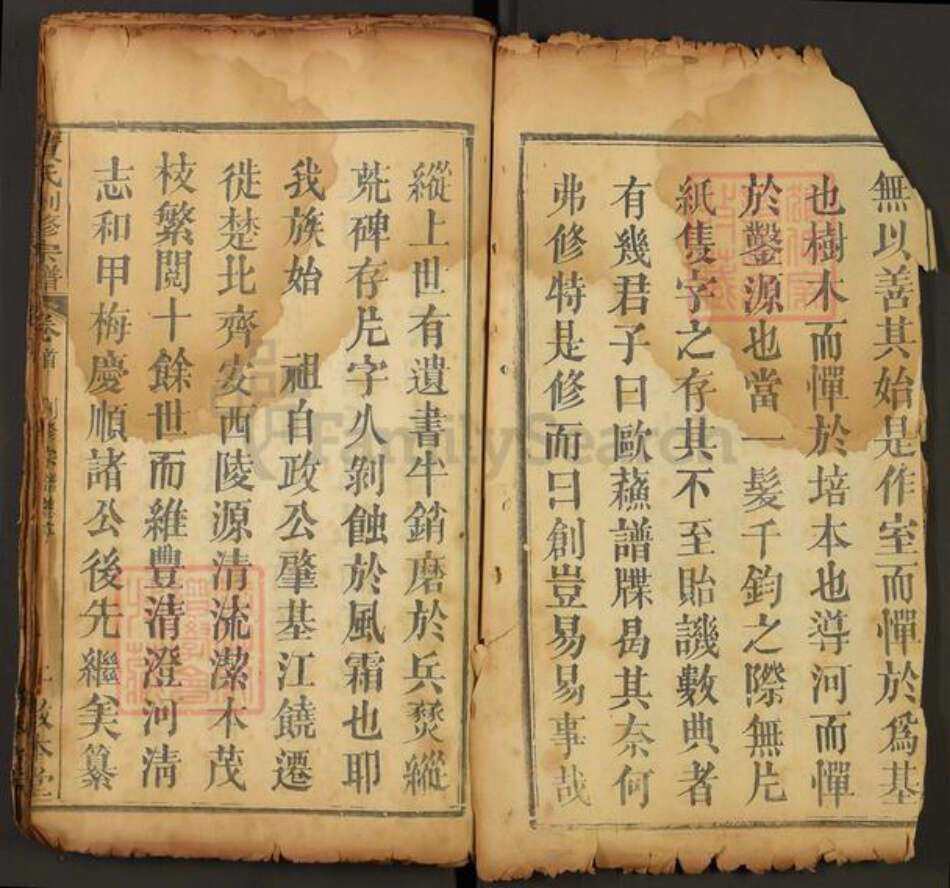 無以善其始是作室而憚於爲基
也樹木而憚於培本也導河而憚
於鑿源也當一髮千鈞之際無片
紙隻字之存其不至貽譏數典者
有幾君子曰歐蘓譜牒曷其奈何
弗修特是修而曰創豈易易事哉
縱上世有遺書半銷磨於兵燹縱
兂碑存片字久剝蝕於風霜也耶
我族始 祖自政公肇基江饒遷
徙楚北齊安西陵源清流潔本茂
枝繁閲十餘世而維豐清澄河清
志和甲梅慶順諸公後先繼矣纂
氏創修宗譜 卷首 創修宗譜 敦本堂
FamilySearch